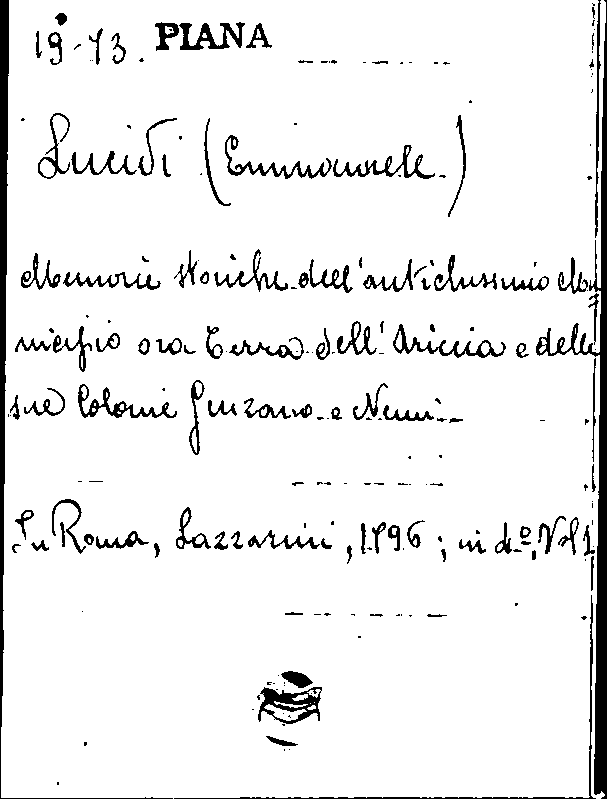 19-73. PIANA
Lucidi (Emmanuele.)
Memorie storiche dell'antichissimo Mu=
nicipio ora Terra dell'Ariccia e delle
sue Colonie Genzano e Nemi
In Roma, Lazzarini, 1796; in d.º, Vol 1